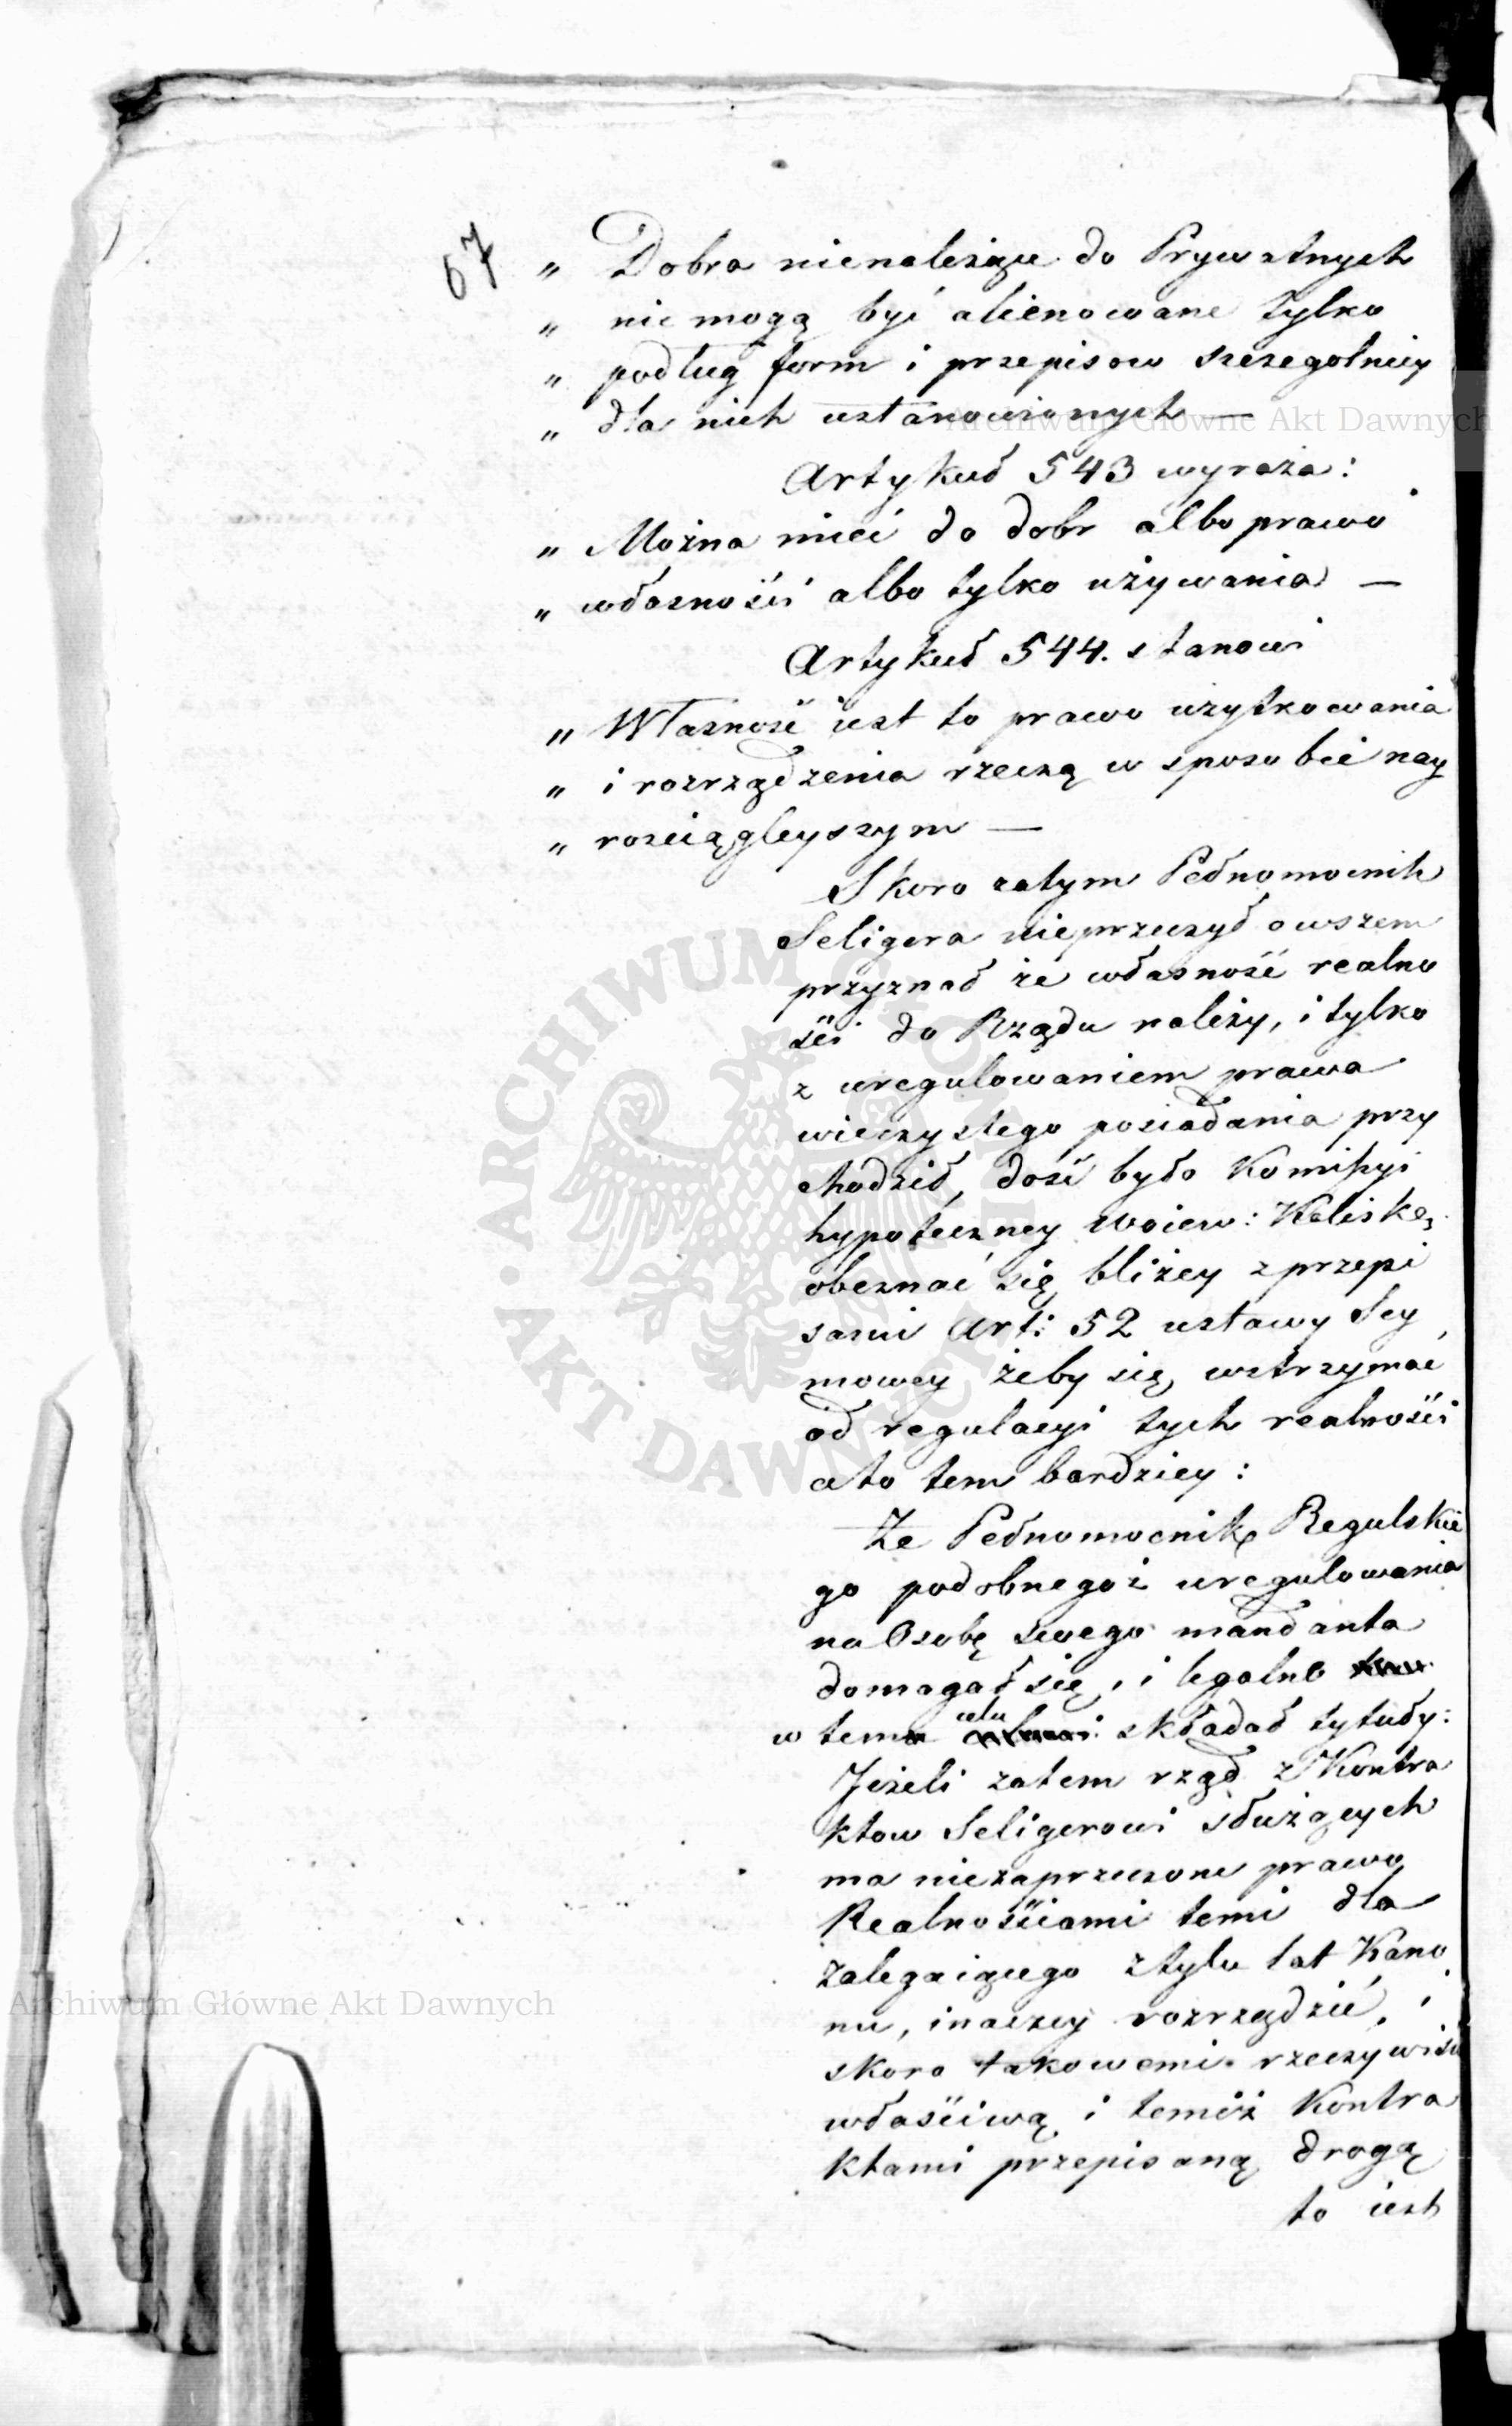 67
„ Dobra nienależące do Prywatnych
„ nie mogą być alienowane tylko
„ podług form i przepisow szczegolniey
„ dla nich ustanowionych —
Artykuł 543 wyraża:
„ Można mieć do dobr albo prawo
„ własności albo tylko używania —
Artykuł 544. stanowi
„ Własność iest to prawo użytkowania
„ i rozrządzenia rzeczą w sposobie nay
„ rosciągleyszym —
Skoro zatym Pełnomocnik
Seligera nieprzeczył owszem
przyznał że własność realno
ści do Rządu należy, i tylko
z uregulowaniem prawa
wieczystego posiadania przy
chodził, dość było Kommissyi
hypoteczney Woiew: Kaliskz.
obeznać się bliżey z przepi
sami Art: 52 ustawy Sey
mowey żeby się wstrzymać
od regulacyi tych realności
a to tem bardziey:
Że Pełnomocnik Regulskie
go podobnegoż uregulowania
na Osobę swego mandanta
domagał się, i legalne
w tem celu składał tytuły:
Jeżeli zatem rząd z Kontra
ktow Seligerowi służących
ma niezaprzeczone prawo
Realnościami temi dla
zalegaiącego z tylu lat Kano
nu, inaczey rozrządzić, i
skoro takowemi rzeczywiście
właściwą i temiż Kontra
ktami przepisaną drogą
to iest
Archiwum Główne Akt Dawnych
Archiwum Główne Akt Dawnych
ARCHIWUM GŁÓWNE AKT DAWNYCH